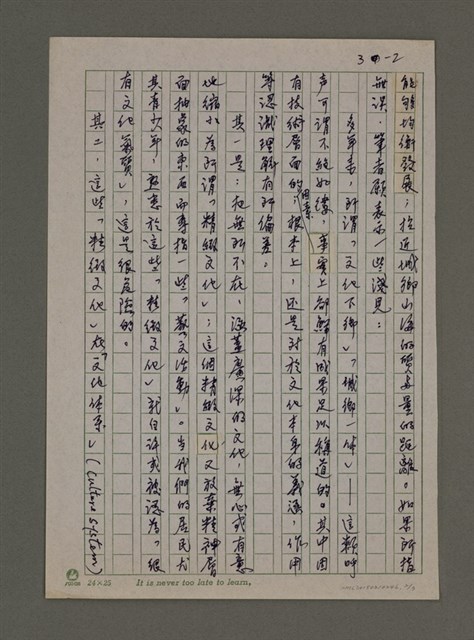 3-2
能夠均衡發展；拉近城鄉山海的質與量的距離。如果所指
無誤，筆者願表示一些淺見：
多年來，所謂「文化下鄉」「城鄉一体」——這類呼
声可謂不絕如縷，事實上卻鮮有成果足以稱道的。其中固
有技術層面的因素，根本上，還是對於文化本身的義涵，作用
等認識理解有所偏差。
其一是：把無所不在，涵蓋廣深的文化，無心或有意
地縮小為所謂「精緻文化」；這個精緻文化又放棄精神層
面抽象的東西而專指一些「藝文活動」。當我們的居民尤
其青少年，熱衷於這些「精緻文化」就自許或被認為「很
有文化氣質」，這是很危險的。
其二，這些「精緻文化」在「文化体系」(Culture System)
24×25
It is never too late to learn.